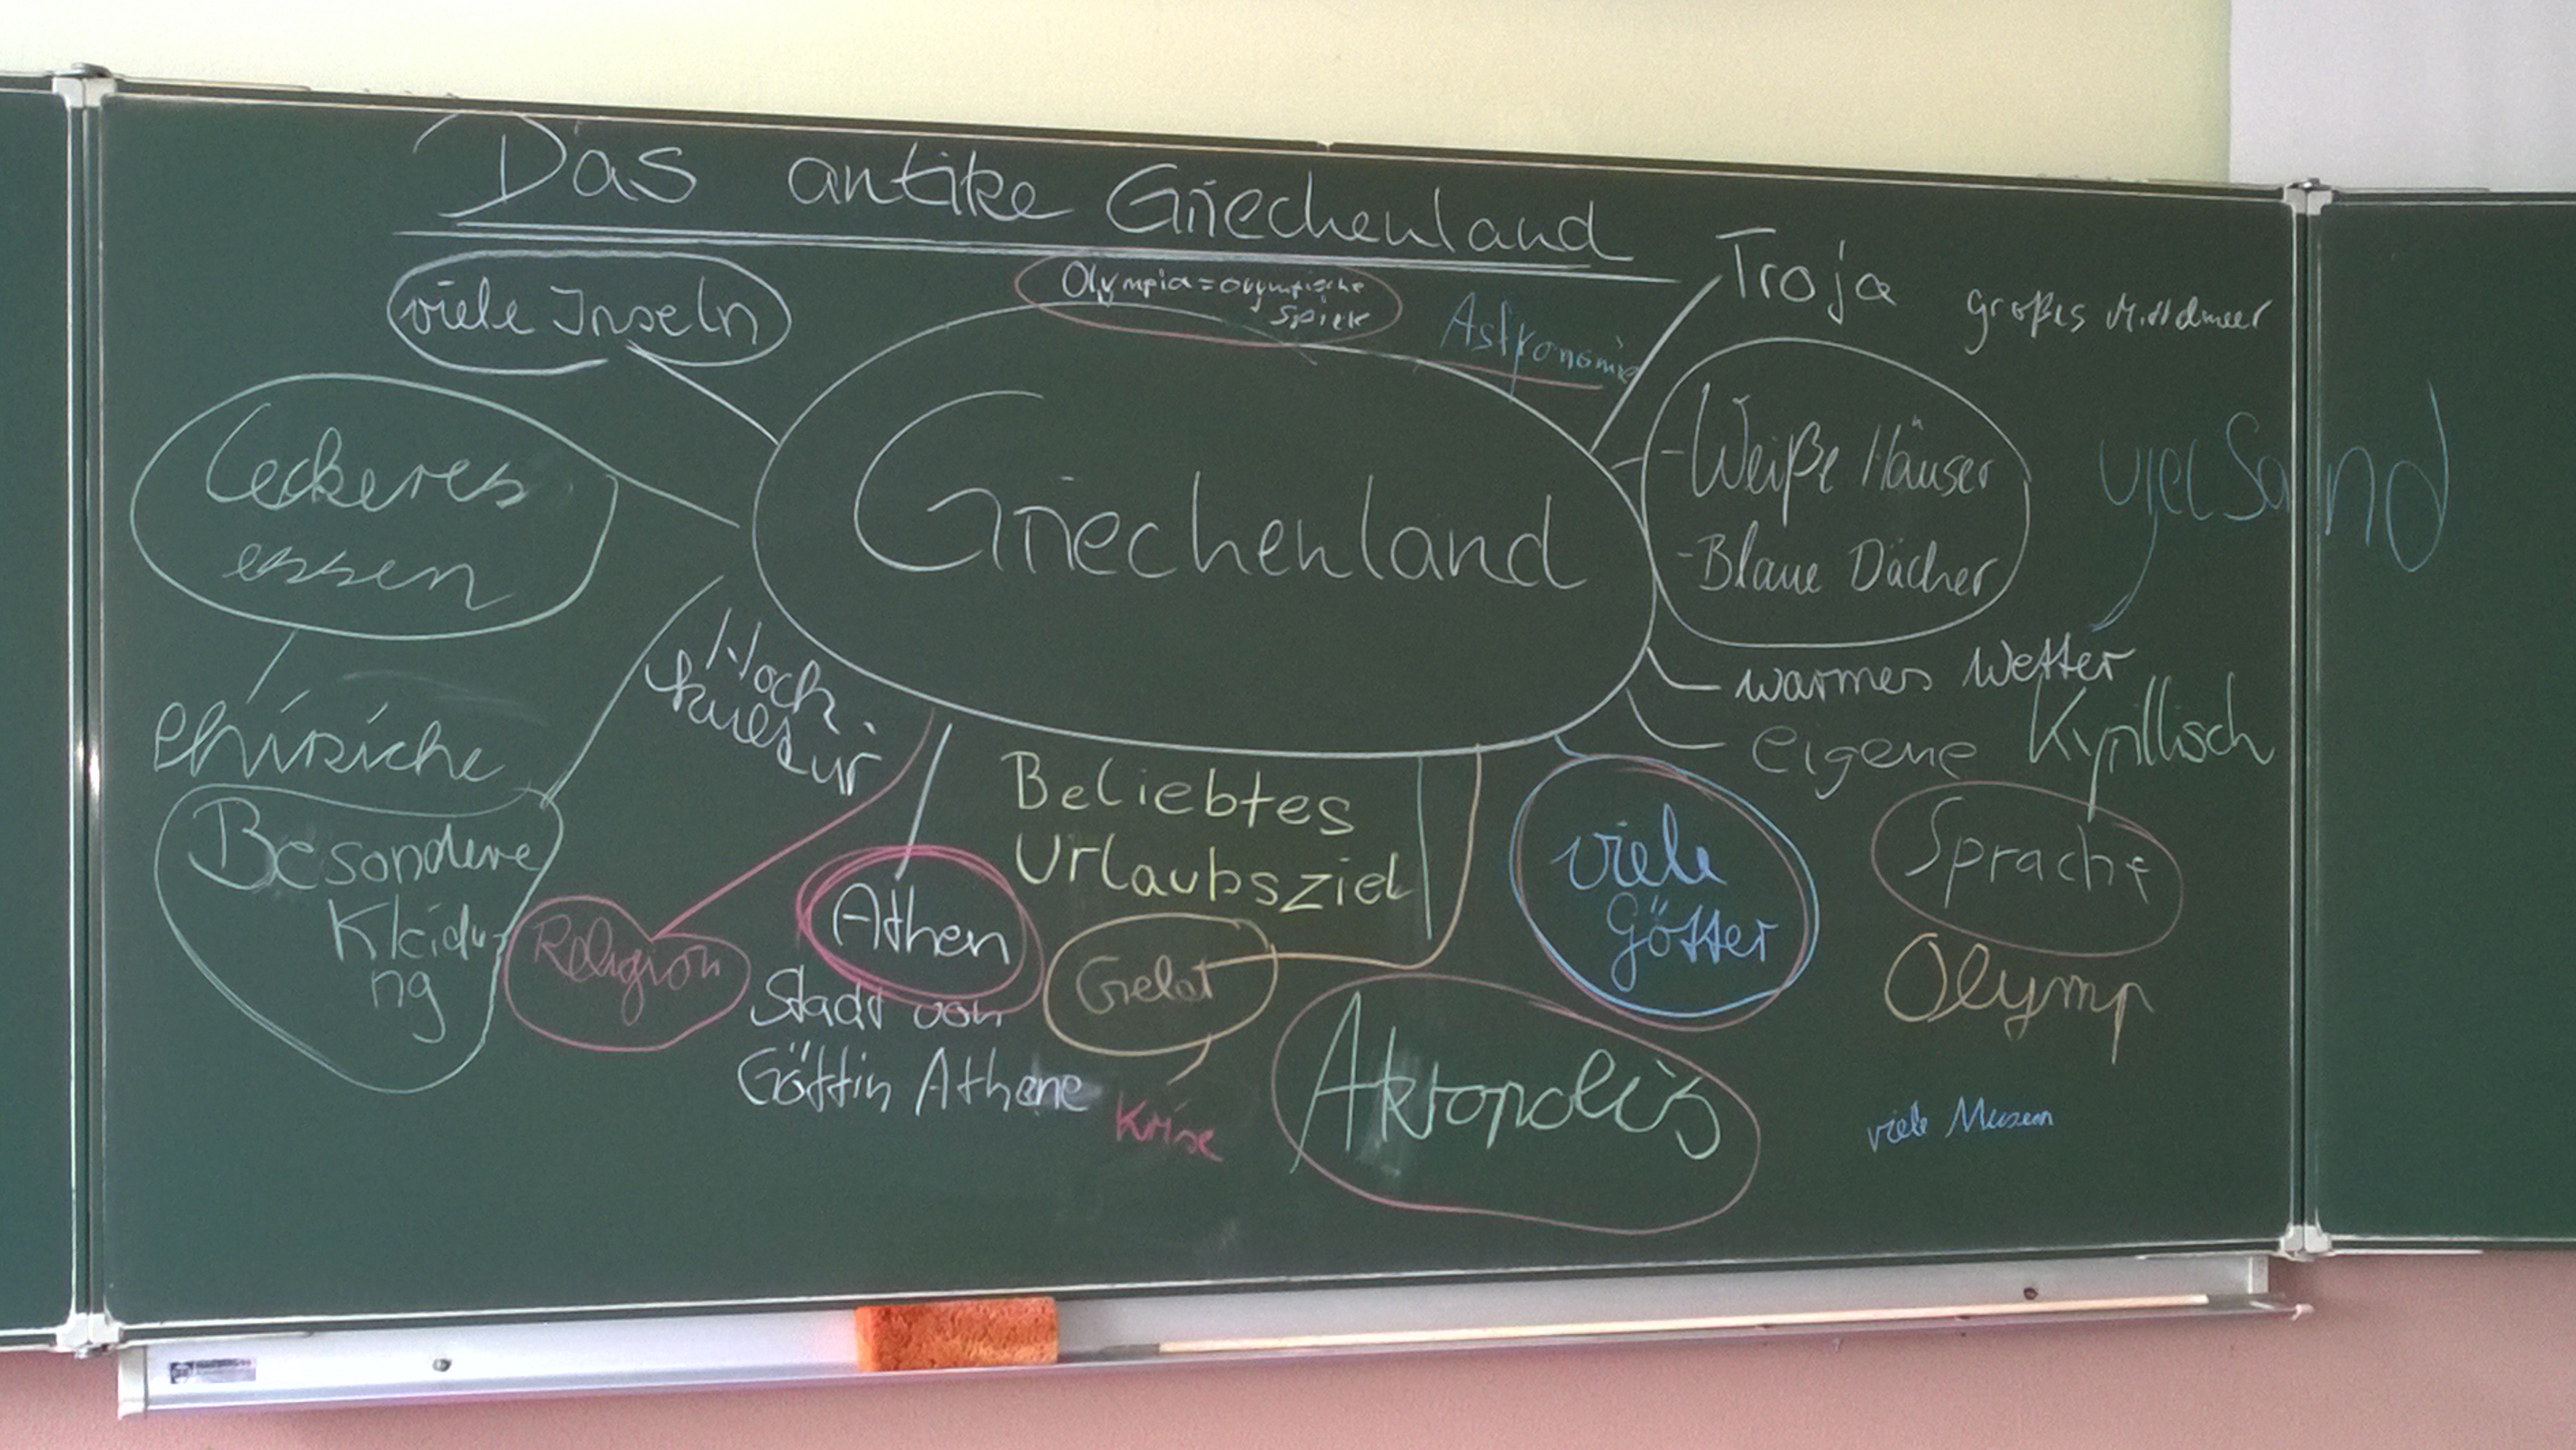 Das antike Griechenland
viele Inseln
Olympia = olympische
Spiele
Astronomie
Troja
großes Mittelmeer
Leckeres
essen
Griechenland
- Weiße Häuser
- Blaue Dächer
viel Sand
warmes Wetter
eigene
Kyrillisch
Sprache
Hoch
kultur
Besondere
Kleidu-
ng
Religion
Athen
Stadt von
Göttin Athene
Beliebtes
Urlaubsziel
Krise
Akropolis
viele
Götter
Olymp
viele Museen